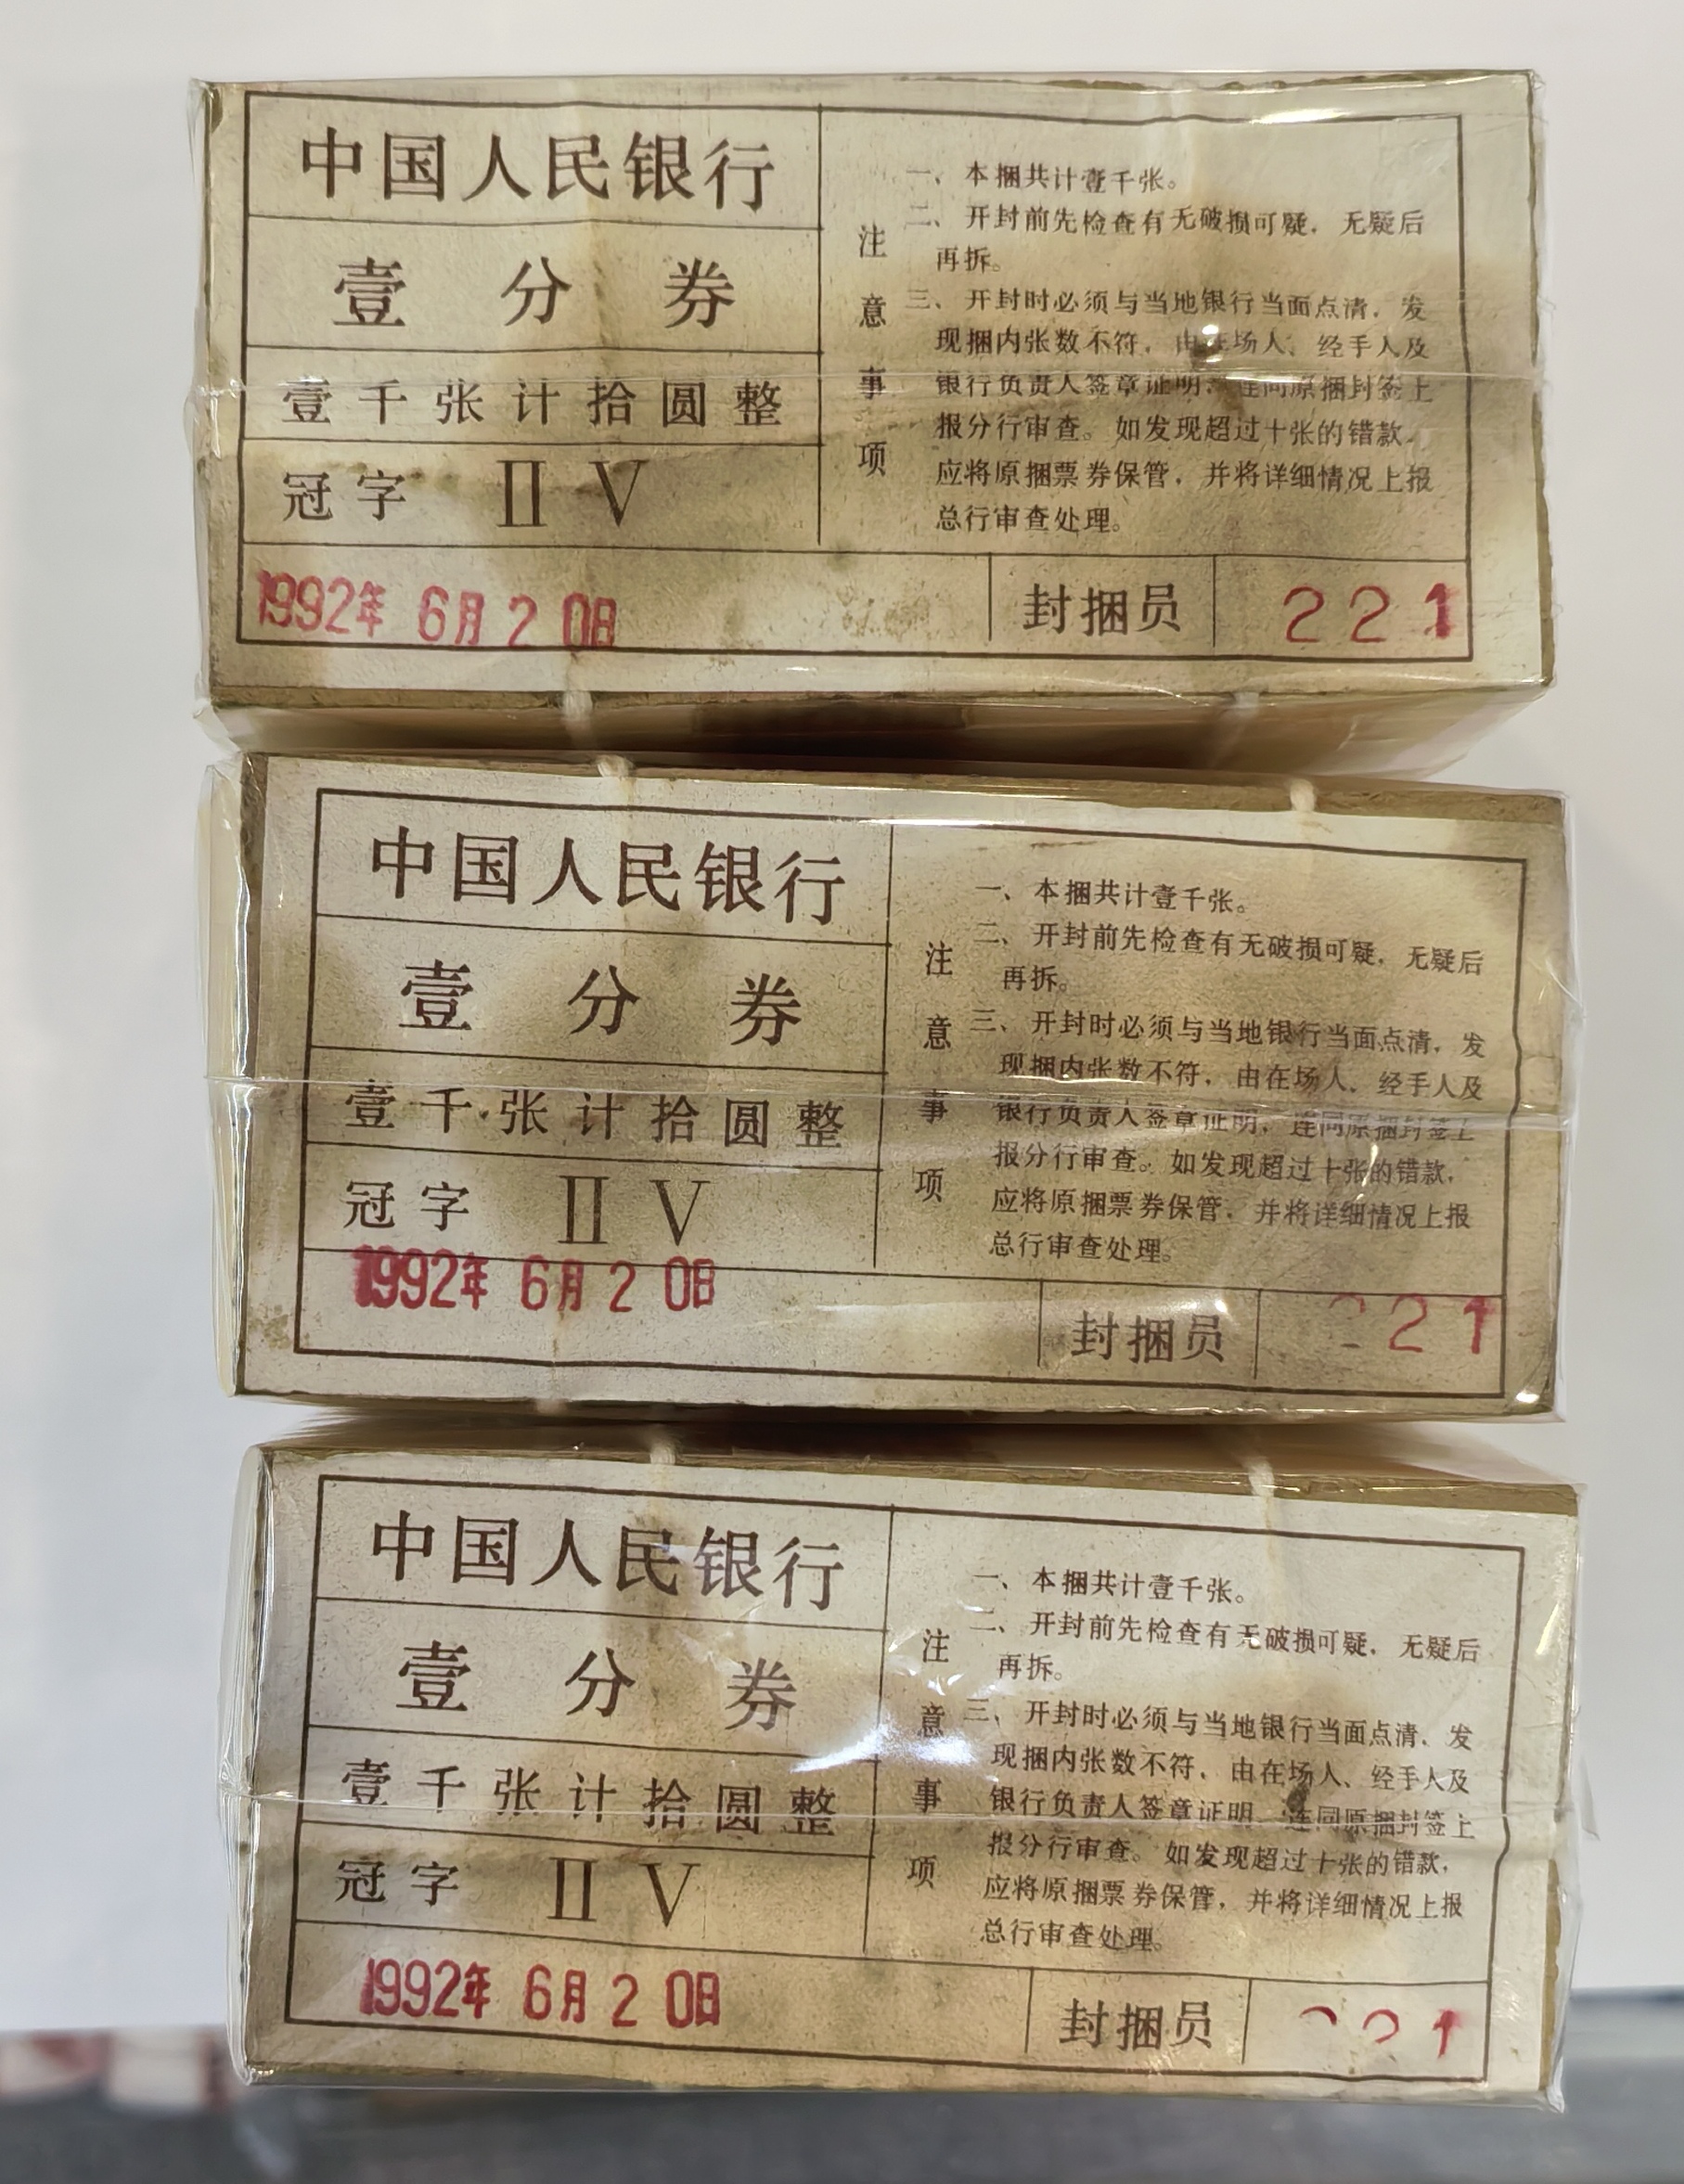 中国人民银行
壹分券
壹千张计拾圆整
冠字 II V
1992年 6月20日
注意事项
一、本捆共计壹千张。
二、开封前先检查有无破损可疑，无疑后
再拆。
三、开封时必须与当地银行当面点清，发
现捆内张数不符，由在场人、经手人及
银行负责人签章证明，连同原捆封签上
报分行审查。如发现超过十张的错款，
应将原捆票券保管，并将详细情况上报
总行审查处理。
封捆员 221
中国人民银行
壹分券
壹千张计拾圆整
冠字 II V
1992年 6月20日
注意事项
一、本捆共计壹千张。
二、开封前先检查有无破损可疑，无疑后
再拆。
三、开封时必须与当地银行当面点清，发
现捆内张数不符，由在场人、经手人及
银行负责人签章证明，连同原捆封签上
报分行审查。如发现超过十张的错款，
应将原捆票券保管，并将详细情况上报
总行审查处理。
封捆员 221
中国人民银行
壹分券
壹千张计拾圆整
冠字 II V
1992年 6月20日
注意事项
一、本捆共计壹千张。
二、开封前先检查有无破损可疑，无疑后
再拆。
三、开封时必须与当地银行当面点清，发
现捆内张数不符，由在场人、经手人及
银行负责人签章证明，连同原捆封签上
报分行审查。如发现超过十张的错款，
应将原捆票券保管，并将详细情况上报
总行审查处理。
封捆员 221